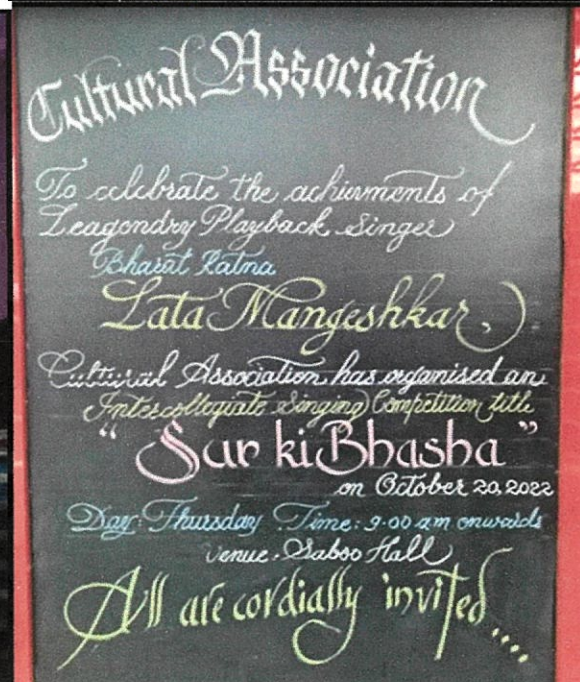 Cultural Association
To celebrate the achievments of
Leagondry Playback Singer
Bharat Ratna
Lata Mangeshkar,
Cultural Association has organised an
Intercollegiate Singing Competition title
"Sur ki Bhasha"
on October 20, 2022
Day: Thursday Time: 9.00 am onwards
Venue - Saboo Hall
All are cordially invited....